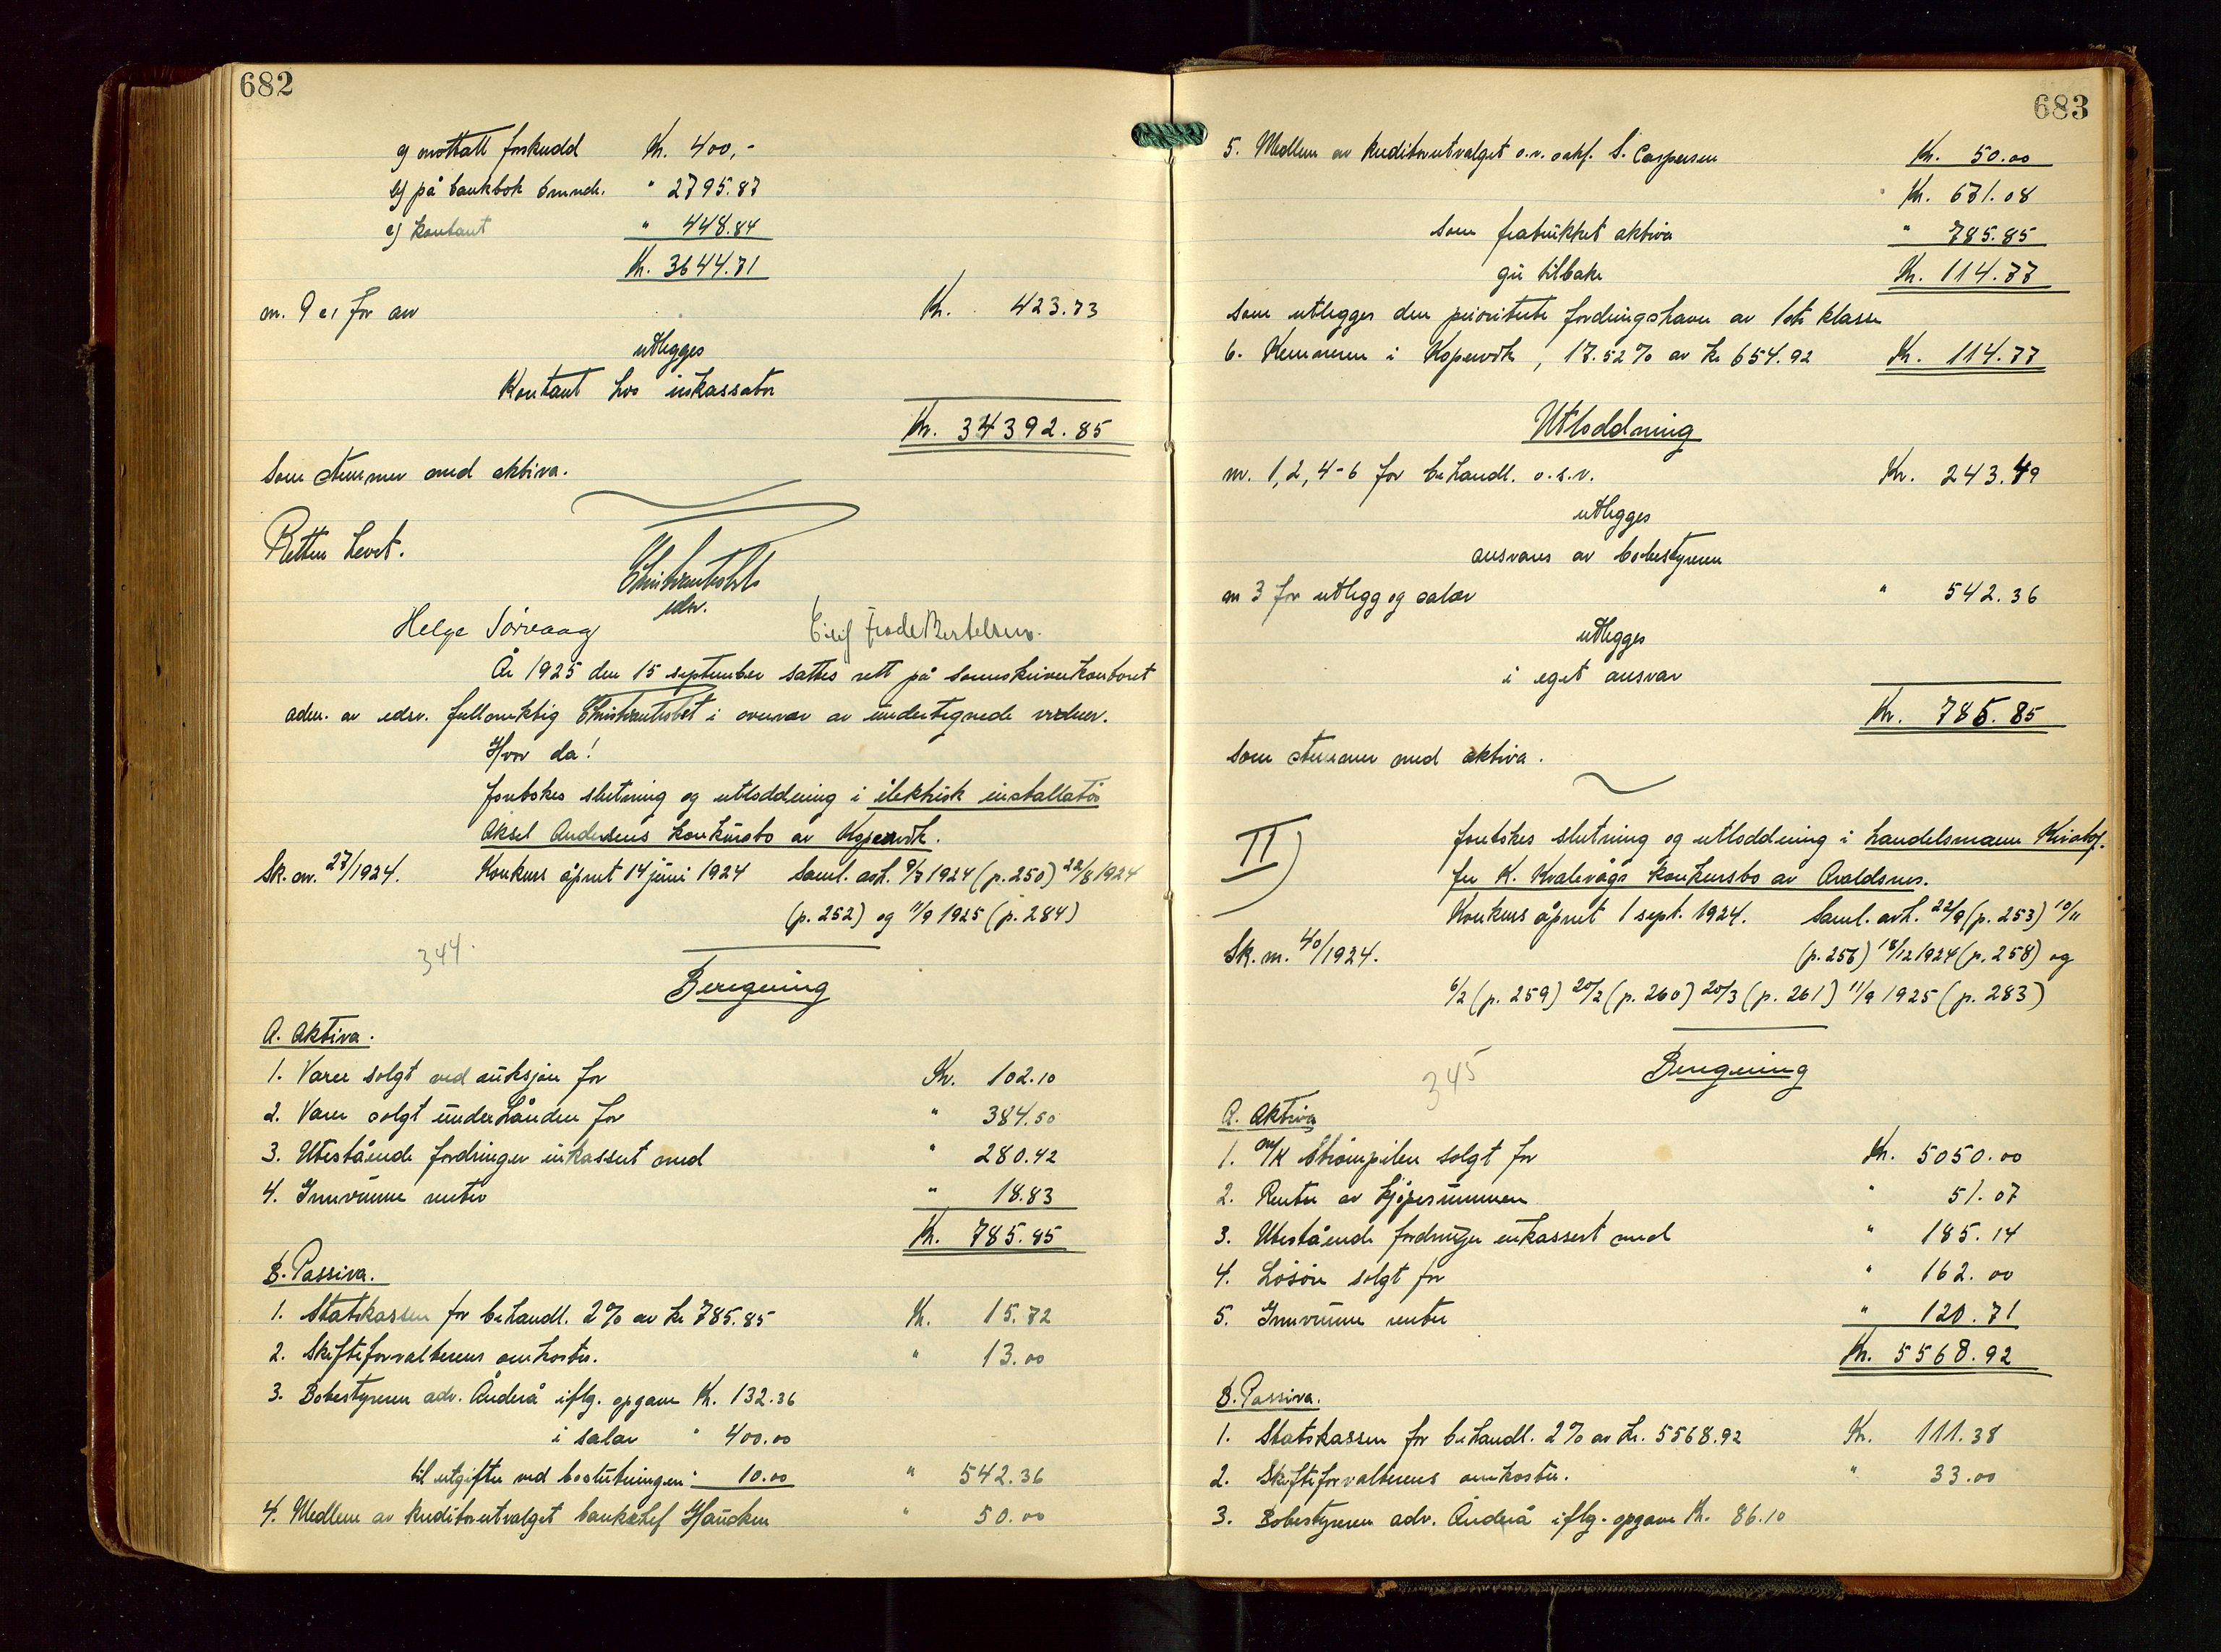 682
a) mottatt forskudd Kr. 400,-
b) på bankbok " 2795.87
c) kontant " 448.84
Kr. 3644.71
nr. 9 c, for arv Kr. 423.73
utlegges
Kontant hos inkassator
Kr. 34392.85
Som stemmer med aktiva.
Retten hevet.
Christentsholt
edsv.
Helge Sørvaag Eilif Frode Bertelsen.
År 1925 den 15 september sattes rett på sorenskriverkontoret
adm. av edsv. fullmektig i overvær av undertegnede vidner.
Hvor da!
foretokes slutning og utloddning i elektrisk installatør
Aksel Andersens konkursbo av Kopervik.
Sk. nr. 27/1924. Konkurs åpnet 14 juni 1924 Saml. avh. 9/7 1924 (p. 250) 22/8 1924
(p. 252) og 11/9 1925 (p. 284)
344.
Beregning
A. Aktiva.
1. Varer solgt ved auksjon for Kr. 102.10
2. Varer solgt underhånden for " 384.50
3. Utestående fordringer inkassert med " 280.42
4. Innvunne renter " 18.83
Kr. 785.85
B. Passiva.
1. Statskassen for behandl. 2% av kr 785.85 Kr. 15.72
2. Skifteforvalterens omkostn. " 13.00
3. Bobestyreren adv. Änderå iflg. opgave Kr. 132.36
i salær " 400.00
til utgifter ved boslutningen " 10.00 " 542.36
4. Medlem av kreditorutvalget banksjef Haucken " 50.00
683
5. Medlem av kreditorutvalget o.r. sakf. S. Caspersen Kr. 50.00
Kr. 671.08
som fratrukket aktiva " 785.85
gir tilbake Kr. 114.77
som utlegges den prioriterte fordringshaver av 1ste klasse
6. Kemneren i Kopervik, 17.52% av kr 654.92 Kr. 114.77
Utloddning
nr. 1, 2, 4-6 for behandl. o.s.v. Kr. 243.49
utlegges
ansvares av bobestyreren
nr 3 for utlegg og salær " 542.36
utlegges
i eget ansvar
Kr. 785.85
som stemmer med aktiva.
II) foretokes slutning og utloddning i handelsmann Kristof-
fer K. Kvalevågs konkursbo av Avaldsnes.
Konkurs åpnet 1 sept. 1924. Saml. avh. 22/9 (p. 253) 10/11
Sk. nr. 40/1924. (p. 256) 18/12 1924 (p. 258) og
6/2 (p. 259) 20/2 (p. 260) 20/3 (p. 261) 11/9 1925 (p. 283)
345
Beregning
A. Aktiva
1. m/k Strømpilen solgt for Kr. 5050.00
2. Renter av kjøpesummen " 51.07
3. Utestående fordringer inkassert med " 185.14
4. Løsøre solgt for " 162.00
5. Innvunne renter " 120.71
Kr. 5568.92
B. Passiva.
1. Statskassen for behandl. 2% av kr. 5568.92 Kr. 111.38
2. Skifteforvalterens omkostn. " 33.00
3. Bobestyreren adv. Änderå iflg. opgave Kr. 86.10